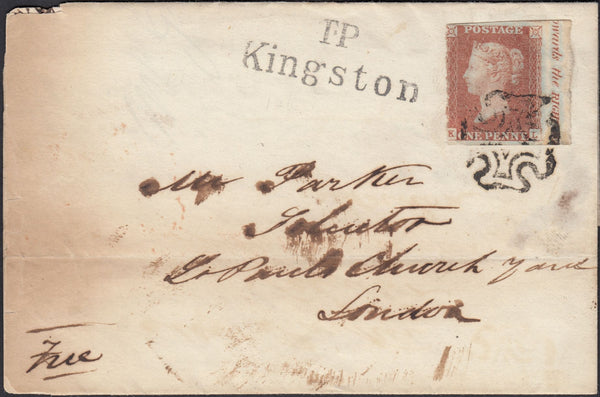 T.P
Kingston
POSTAGE
owards the Righ
K L
ONE PENNY
Mr Parker
Solicitor
St Pauls Church yard
London
Free